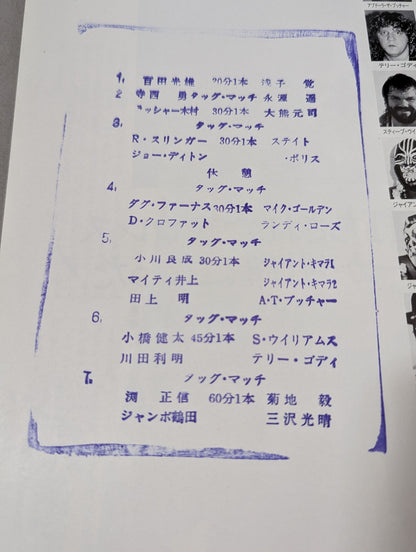 1. 百田光雄 20分1本 浅子 覚
2 寺西 勇 タッグ・マッチ 永源 遥
ラッシャー木村 30分1本 大熊元司
3. タッグ・マッチ
R・スリンガー 30分1本 ステイト
ジョー・ディトン ・ボリス
休憩
4. タッグ・マッチ
ダグ・ファーナス 30分1本 マイク・ゴールデン
D・クロファット ランディ・ローズ
5. タッグ・マッチ
小川良成 30分1本 ジャイアント・キマラ1
マイティ井上 ジャイアント・キマラ2
田上 明 A・T・ブッチャー
6. タッグ・マッチ
小橋健太 45分1本 S・ウイリアムス
川田利明 テリー・ゴディ
7. タッグ・マッチ
渕 正信 60分1本 菊地 毅
ジャンボ鶴田 三沢光晴
アブドーラ・ザ・ブッチャー
テリー・ゴディ
スティーブ・ウイ
ジャイアン